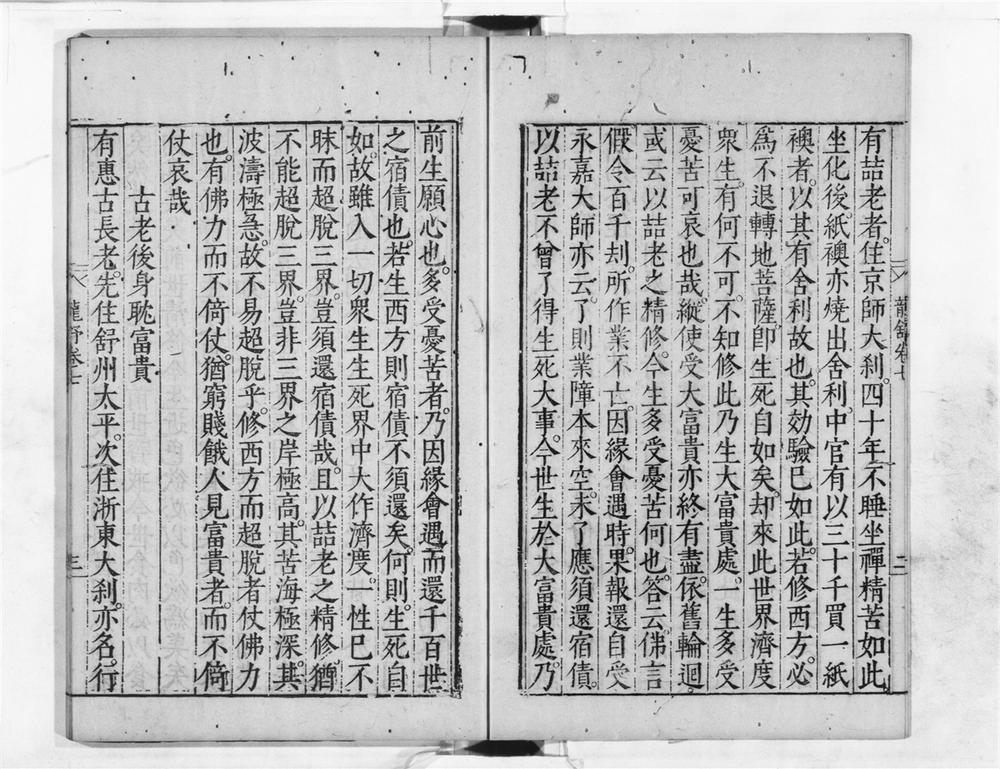 有喆老者。住京師大刹。四十年不睡坐禪精苦如此
坐化後。紙襖亦燒出舍利。中官有以三十千買一紙
襖者。以其有舍利故也。其効驗已如此。若修西方。必
爲不退轉地菩薩。即生死自如矣。却來此世界濟度
衆生。有何不可。不知修此乃生大富貴處。一生多受
憂苦可哀也哉。縱使受大富貴亦終有盡。依舊輪迴。
或云以喆老之精修。今生多受憂苦何也。答云。佛言
假令百千刧。所作業不亡。因緣會遇時。果報還自受
永嘉大師亦云。了則業障本來空。未了應須還宿債。
以喆老不曾了得生死大事。今世生於大富貴處。乃
龍舒卷七
二
前生願心也。多受憂苦者。乃因緣會遇。而還千百世
之宿債也。若生西方則宿債不須還矣。何則。生死自
如。故雖入一切衆生生死界中大作濟度。一性已不
昧而超脫三界。豈須還宿債哉。且以喆老之精修。猶
不能超脫三界。豈非三界之岸極高。其苦海極深。其
波濤極急。故不易超脫乎。修西方而超脫者仗佛力
也。有佛力而不倚仗。猶窮賤餓人見富貴者而不倚
仗哀哉
古老後身躭富貴
有惠古長老。先住舒州太平。次住浙東大刹。亦名。行
龍舒卷七
三